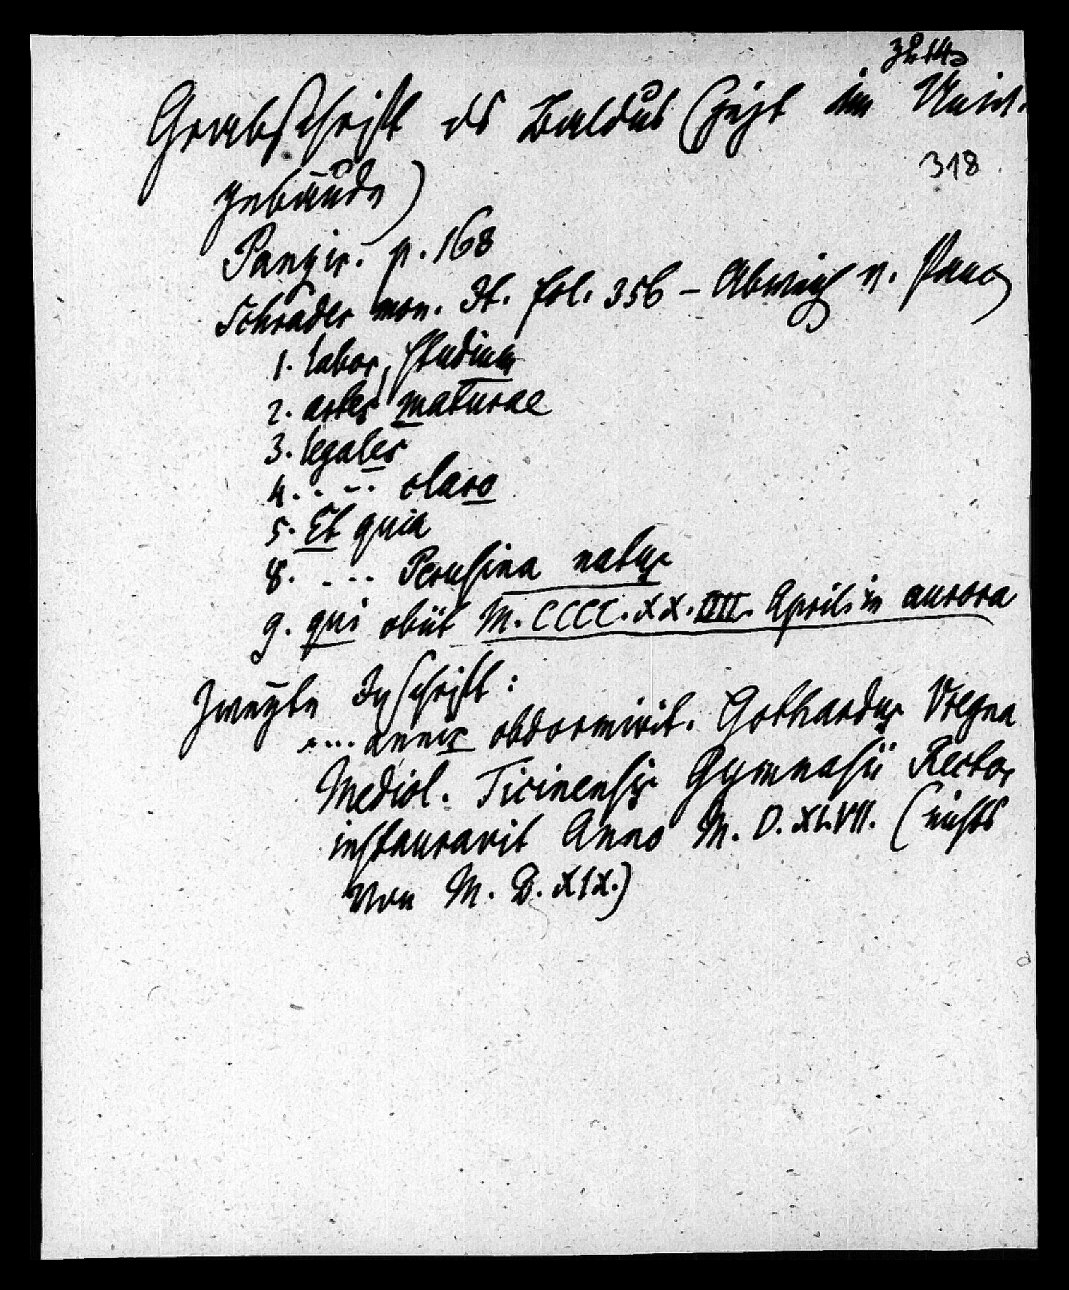 3214
Grabschrift des Baldus (jezt im Univ.
318
gebäude)
Panzir. p. 168
Schrader mon. It. fol. 356 – Abweich v. Panz
1. labor, studium
2. artes maturae
3. legales
4. . . . . claro
5. Et quia
8. . . . . Perusina natus
9. qui obiit M. CCCC. XX. IIII. Aprilis in aurora
Zweyte Inschrift:
. . . . annis obdormivit. Gothardus Vregna
Mediol. Ticinensis Gymnasii Rector
instauravit Anno M. D. XLVII. (nichts
von M. D. XIX.)